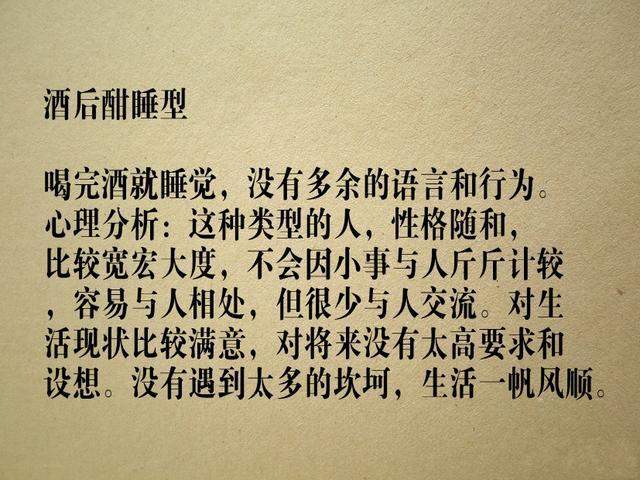 酒后酣睡型
喝完酒就睡觉，没有多余的语言和行为。
心理分析：这种类型的人，性格随和，
比较宽宏大度，不会因小事与人斤斤计较
，容易与人相处，但很少与人交流。对生
活现状比较满意，对将来没有太高要求和
设想。没有遇到太多的坎坷，生活一帆风顺。